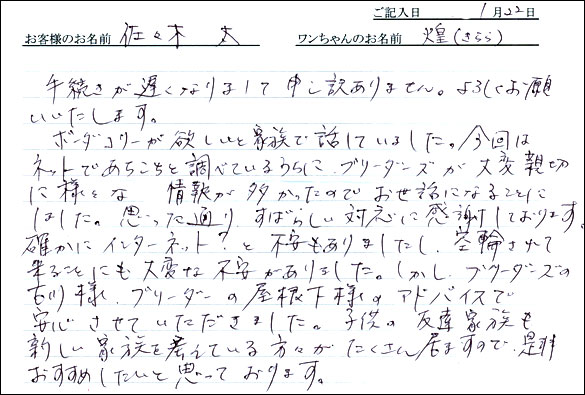 ご記入日 1月22日
お客様のお名前 佐々木 太 ワンちゃんのお名前 煌(きらら)
手続きが遅くなりまして申し訳ありません。よろしくお願
いいたします。
ボーダーコリーが欲しいと家族で話していました。今回は
ネットであちこちと調べているうちに、ブリーダーズが大変親切
に様々な 情報が多かったのでお世話になることに
しました。思った通り、すばらしい対応に感謝しております。
確かにインターネット?と不安もありましたし、空輸されて
来ることにも大変な不安がありました。しかし、ブリーダーズの
古川様、ブリーダーの屋根下様のアドバイスで
安心させていただきました。子供の友達家族も
新しい家族を考えている方々がたくさん居ますので、是非
おすすめしたいと思っております。